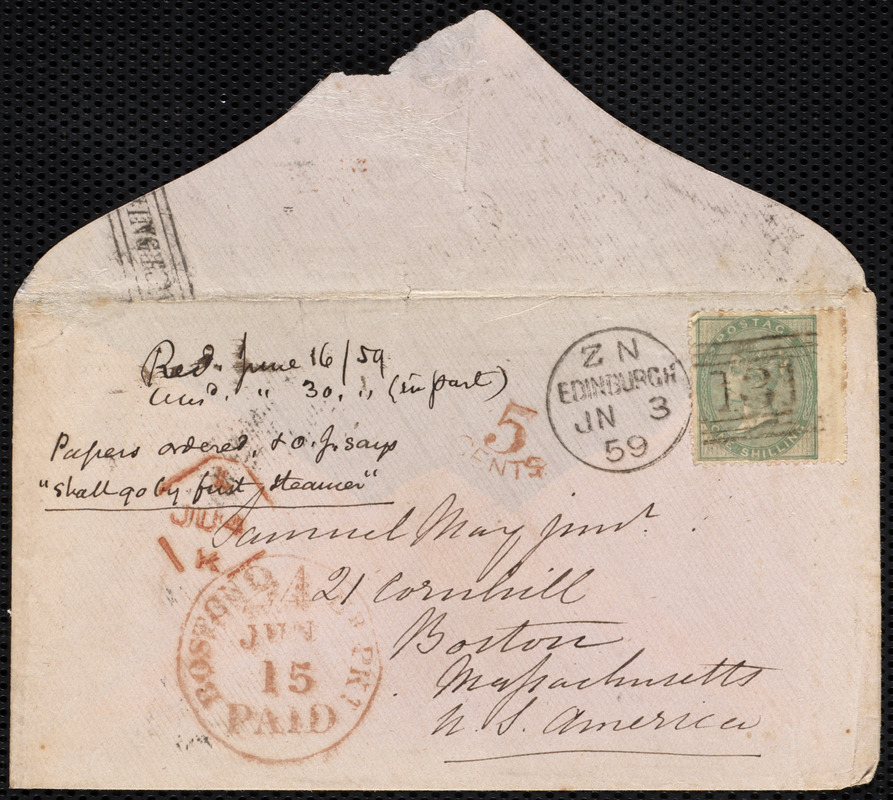 Recd. June 16/59
Ansd. " 30. " (in part)
Papers ordered, & O. J. says
"shall go by first steamer"
5
CENTS
ZN
EDINBURGH
JN 3
59
POSTAGE
131
ONE SHILLING
JU 4
K
Samuel May junr.
21 Cornhill
Boston
Massachusetts
U. S. America
BOSTON BR PKT
24
JUN
15
PAID